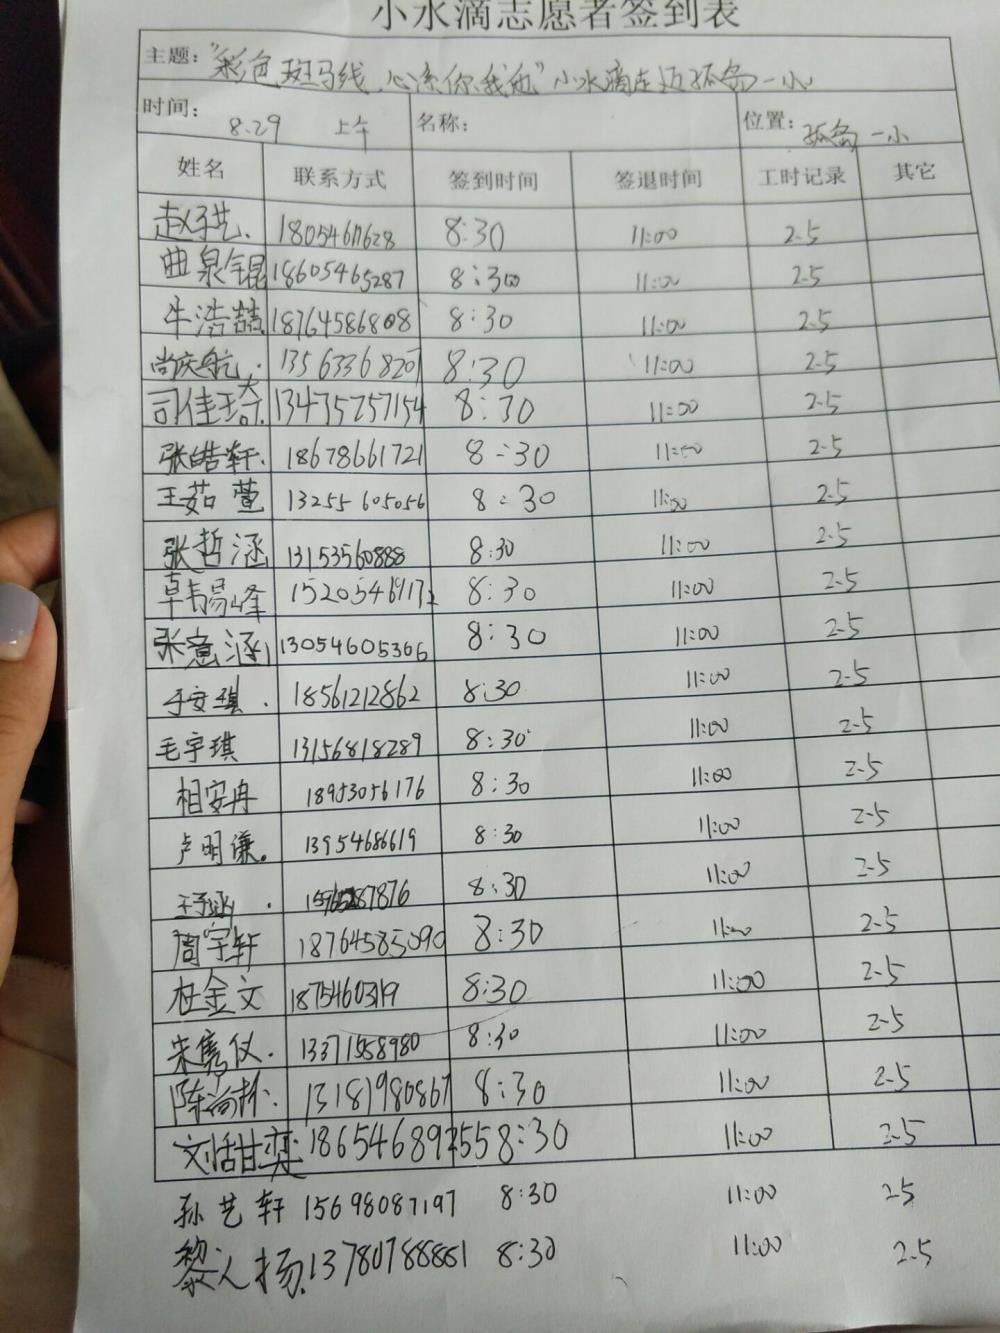 小水滴志愿者签到表
主题：“彩色斑马线，心系你我他”小水滴走近孤岛一小
时间： 8.29 上午 名称： 位置： 孤岛一小
姓名 联系方式 签到时间 签退时间 工时记录 其它
8:30 11:00 2.5
曲泉锟 18605465287 8:30 11:00 2.5
牛浩喆 18764586808 8:30 11:00 2.5
尚庆航 13563368207 8:30 11:00 2.5
司佳琦 13475757154 8:30 11:00 2.5
张皓轩 18678661721 8:30 11:00 2.5
王茹萱 13255605056 8:30 11:00 2.5
张哲涵 13153560888 8:30 11:00 2.5
8:30 11:00 2.5
张意涵 13054605366 8:30 11:00 2.5
于安琪 18561212862 8:30 11:00 2.5
毛宇琪 13156818289 8:30 11:00 2.5
相安冉 18953056176 8:30 11:00 2.5
卢明谦 13954686619 8:30 11:00 2.5
8:30 11:00 2.5
周宇轩 18764585090 8:30 11:00 2.5
杜金文 8:30 11:00 2.5
宋隽仪 13371558980 8:30 11:00 2.5
13181980867 8:30 11:00 2.5
8:30 11:00 2.5
孙艺轩 15698087197 8:30 11:00 2.5
黎人扬 13780788881 8:30 11:00 2.5